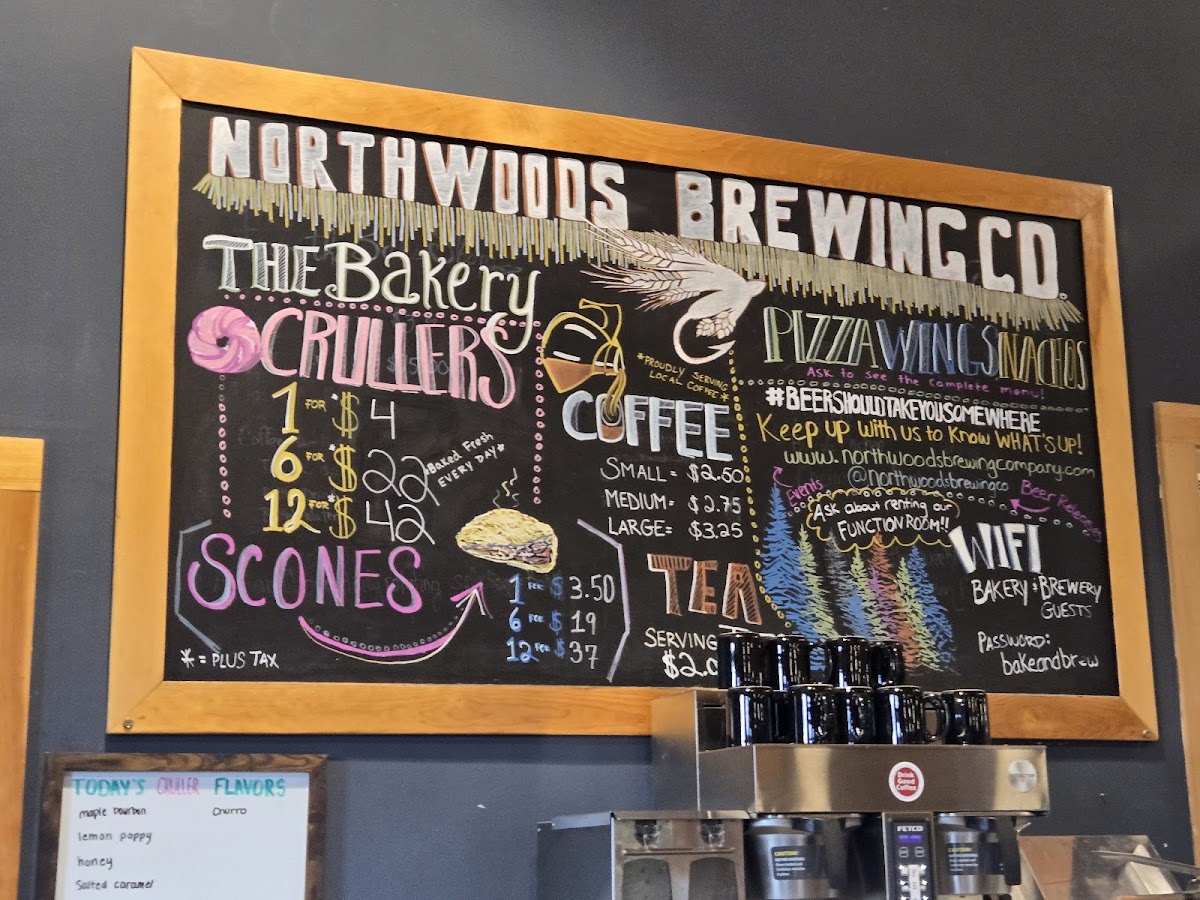 NORTHWOODS BREWING CO.
THE Bakery
CRULLERS
1 FOR *$ 4
6 FOR *$ 22
12 FOR *$ 42
*Baked Fresh
EVERY DAY*
SCONES
1 FOR $ 3.50
6 FOR $ 19
12 FOR $ 37
* = PLUS TAX
*PROUDLY SERVING
LOCAL COFFEE*
COFFEE
SMALL = $2.50
MEDIUM = $2.75
LARGE = $3.25
TEA
SERVING
PIZZA WINGS NACHOS
ASK to see the complete menu!
#BEERSHOULDTAKEYOUSOMEWHERE
Keep up with us to Know WHAT'S UP!
www.northwoodsbrewingcompany.com
@northwoodsbrewingco
Events
Beer Releases
Ask about renting our
FUNCTION ROOM!!
WIFI
BAKERY & BREWERY
GUESTS
PASSWORD:
bakeandbrew
TODAY'S CRULLER FLAVORS
maple bourbon
Churro
lemon poppy
honey
Salted caramel
Drink
Good
Coffee
FETCO
CAUTION!